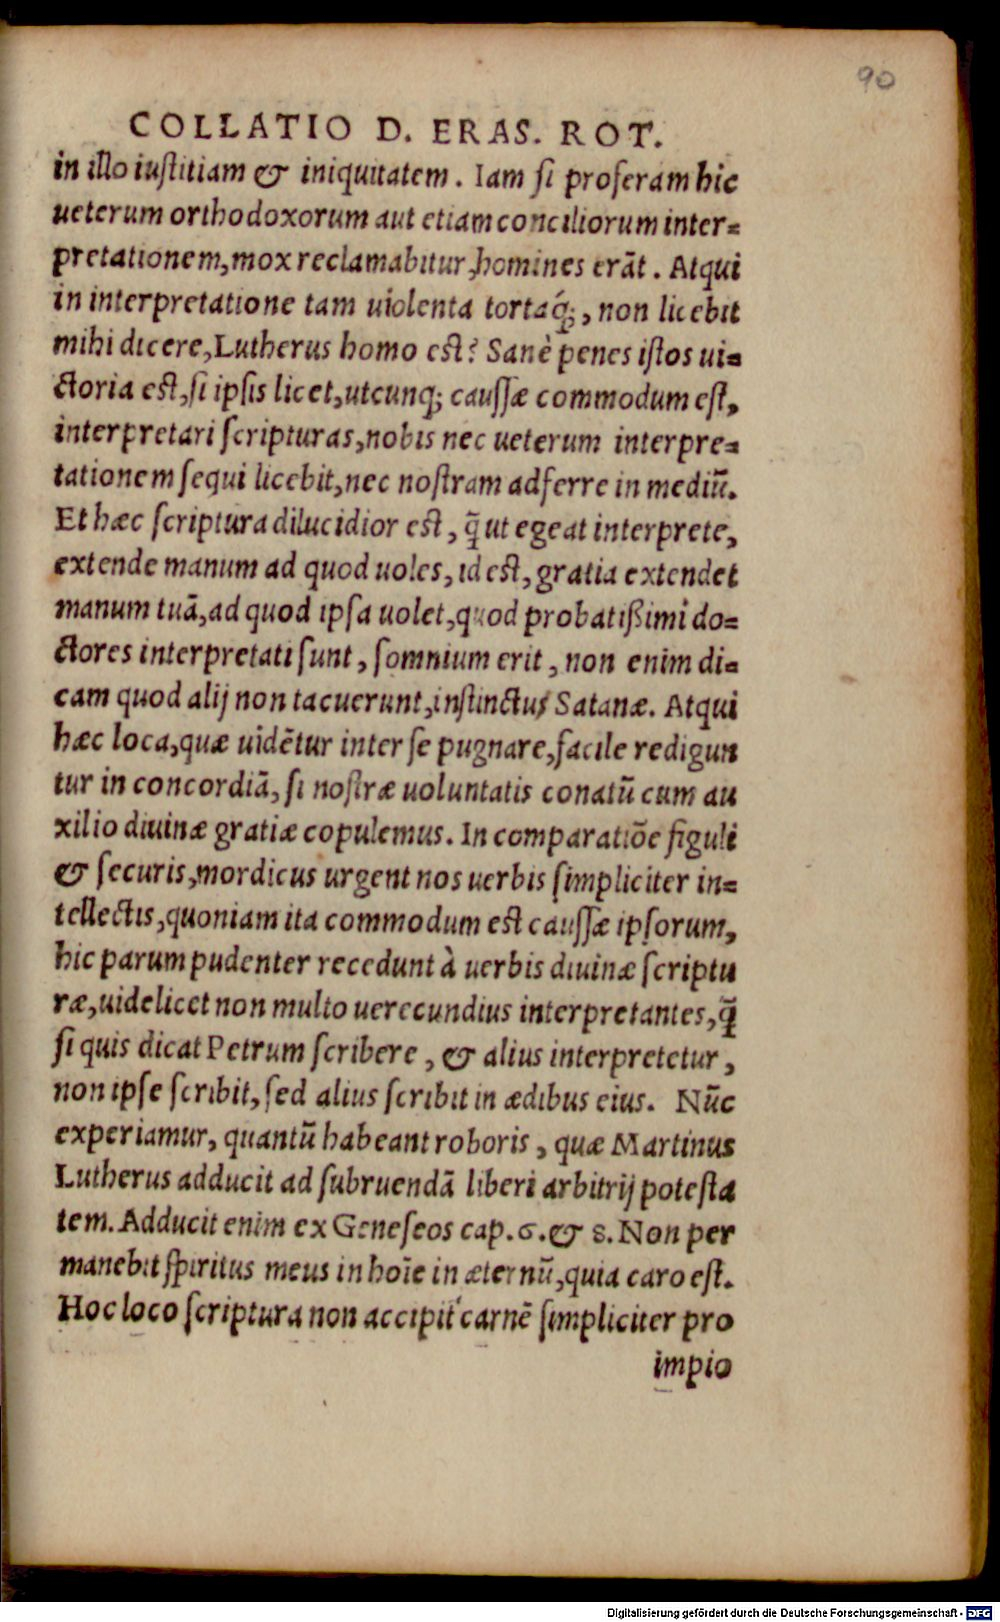 90
COLLATIO D. ERAS. ROT.
in illo iustitiam & iniquitatem. Iam si proferam hic
ueterum orthodoxorum aut etiam conciliorum inter-
pretationem, mox reclamabitur, homines erāt. Atqui
in interpretatione tam uiolenta tortaq́;, non licebit
mihi dicere, Lutherus homo est? Sanè penes istos ui-
ctoria est, si ipsis licet, utcunq; caussæ commodum est,
interpretari scripturas, nobis nec ueterum interpre-
tationem sequi licebit, nec nostram adferre in mediũ.
Et hæc scriptura dilucidior est, q̃ ut egeat interprete,
extende manum ad quod uoles, id est, gratia extendet
manum tuã, ad quod ipsa uolet, quod probatißimi do-
ctores interpretati sunt, somnium erit, non enim di-
cam quod alij non tacuerunt, instinctus Satanæ. Atqui
hæc loca, quæ uidẽtur inter se pugnare, facile redigun
tur in concordiã, si nostræ uoluntatis conatũ cum au
xilio diuinæ gratiæ copulemus. In comparatiõe figuli
& securis, mordicus urgent nos uerbis simpliciter in-
tellectis, quoniam ita commodum est caussæ ipsorum,
hic parum pudenter recedunt à uerbis diuinæ scriptu
ræ, uidelicet non multo uerecundius interpretantes, q̃
si quis dicat Petrum scribere, & alius interpretetur,
non ipse scribit, sed alius scribit in ædibus eius. Nũc
experiamur, quantũ habeant roboris, quæ Martinus
Lutherus adducit ad subruendã liberi arbitrij potesta
tem. Adducit enim ex Geneseos cap. 6. & 8. Non per
manebit spiritus meus in hoĩe in æternũ, quia caro est.
Hoc loco scriptura non accipit carnẽ simpliciter pro
impio
Digitalisierung gefördert durch die Deutsche Forschungsgemeinschaft - DFG